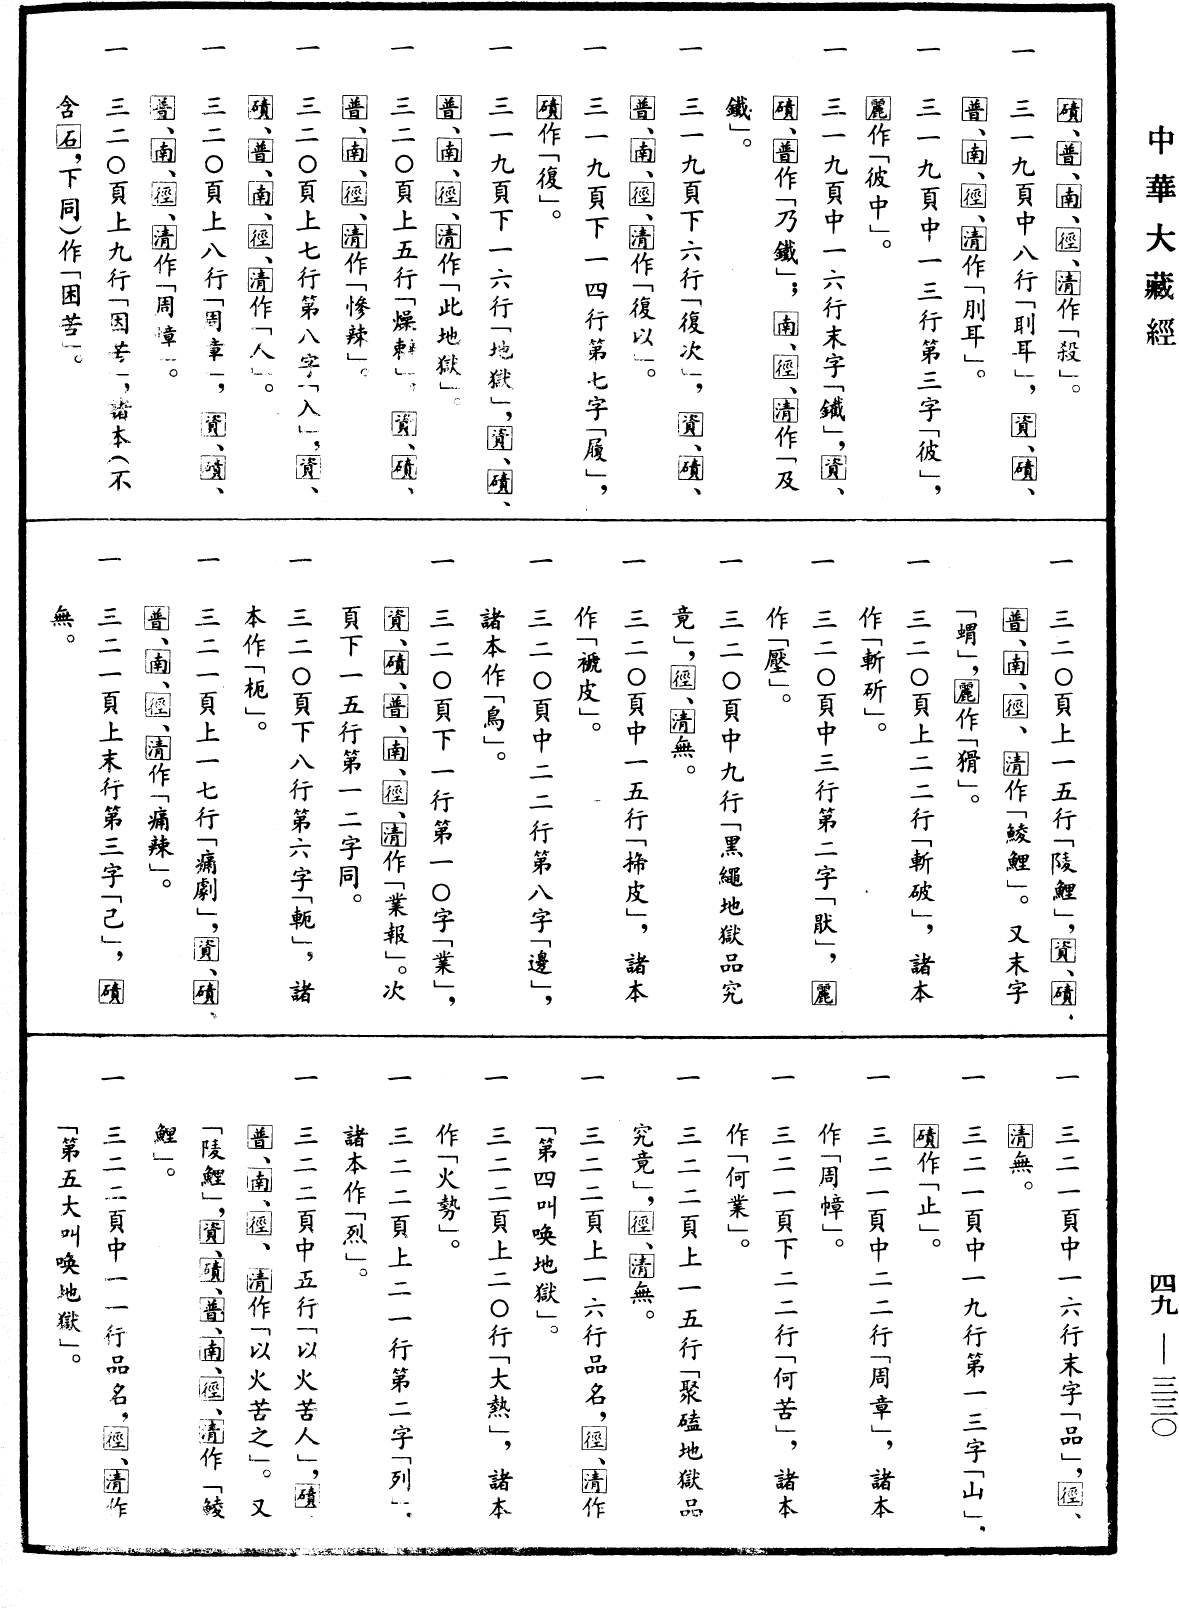 中華大藏經
磧、普、南、徑、清作「殺」。
一　三一九頁中八行「刵耳」，資、磧、
普、南、徑、清作「刖耳」。
一　三一九頁中一三行第三字「彼」，
麗作「彼中」。
一　三一九頁中一六行末字「鐵」，資、
磧、普作「乃鐵」；南、徑、清作「及
鐵」。
一　三一九頁下六行「復次」，資、磧、
普、南、徑、清作「復以」。
一　三一九頁下一四行第七字「履」，
磧作「復」。
一　三一九頁下一六行「地獄」，資、磧、
普、南、徑、清作「此地獄」。
一　三二〇頁上五行「燥辣」，資、磧、
普、南、徑、清作「慘辣」。
一　三二〇頁上七行第八字「入」，資、
磧、普、南、徑、清作「人」。
一　三二〇頁上八行「周章」，資、磧、
普、南、徑、清作「周慞」。
一　三二〇頁上九行「因苦」，諸本（不
含石，下同）作「困苦」。
一　三二〇頁上一五行「陵鯉」，資、磧、
普、南、徑、清作「鯪鯉」。又末字
「蝟」，麗作「猾」。
一　三二〇頁上二二行「斬破」，諸本
作「斬斫」。
一　三二〇頁中三行第二字「猒」，麗
作「壓」。
一　三二〇頁中九行「黑繩地獄品究
竟」，徑、清無。
一　三二〇頁中一五行「揥皮」，諸本
作「褫皮」。
一　三二〇頁中二二行第八字「邊」，
諸本作「鳥」。
一　三二〇頁下一行第一〇字「業」，
資、磧、普、南、徑、清作「業報」。次
頁下一五行第一二字同。
一　三二〇頁下八行第六字「軛」，諸
本作「枙」。
一　三二一頁上一七行「痛劇」，資、磧、
普、南、徑、清作「痛辣」。
一　三二一頁上末行第三字「己」，磧
無。
一　三二一頁中一六行末字「品」，徑、
清無。
一　三二一頁中一九行第一三字「山」，
磧作「止」。
一　三二一頁中二二行「周章」，諸本
作「周慞」。
一　三二一頁下二二行「何苦」，諸本
作「何業」。
一　三二二頁上一五行「聚磕地獄品
究竟」，徑、清無。
一　三二二頁上一六行品名，徑、清作
「第四叫喚地獄」。
一　三二二頁上二〇行「大熱」，諸本
作「火勢」。
一　三二二頁上二一行第二字「列」，
諸本作「烈」。
一　三二二頁中五行「以火苦人」，磧、
普、南、徑、清作「以火苦之」。又
「陵鯉」，資、磧、普、南、徑、清作「鯪
鯉」。
一　三二二頁中一一行品名，徑、清作
「第五大叫喚地獄」。
四九—三三〇